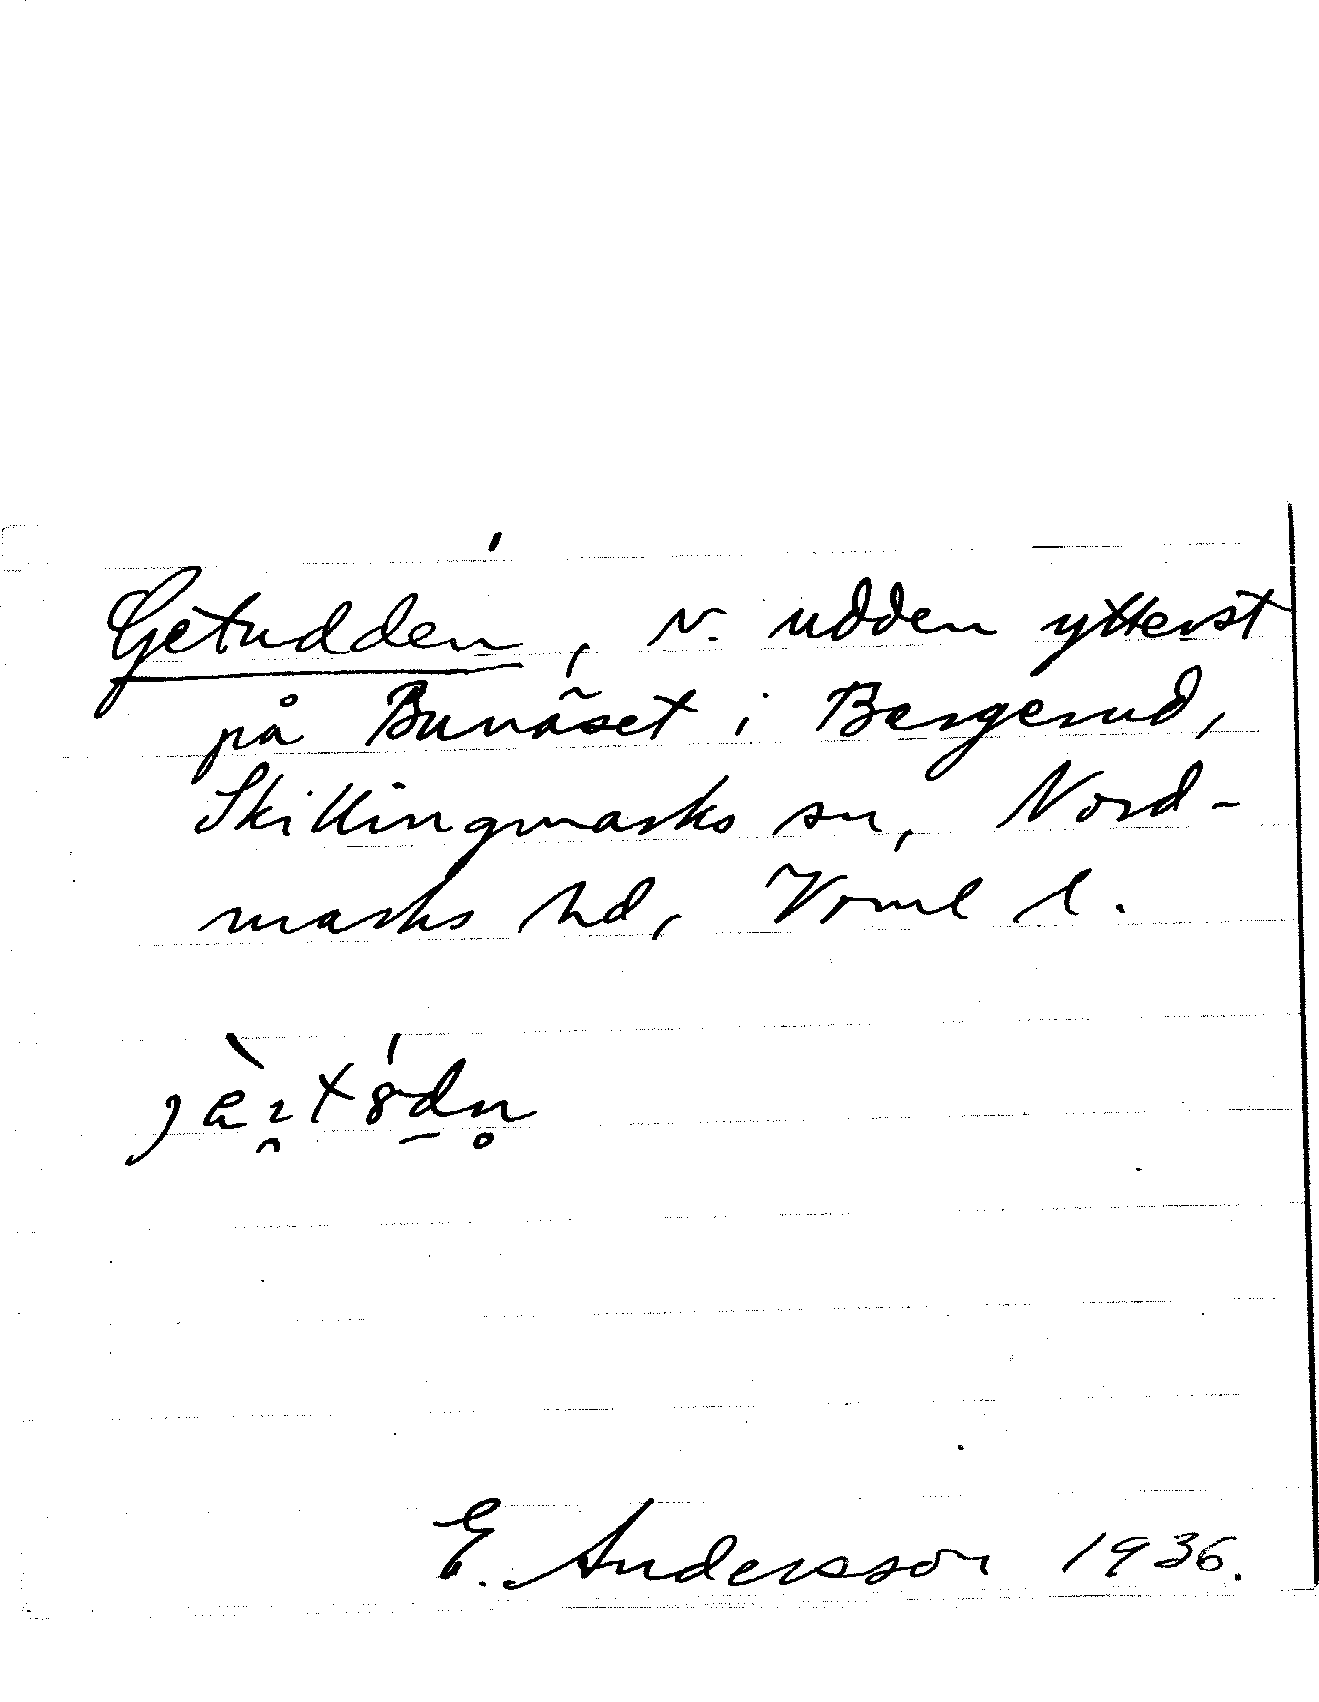 Getudden, N. udden ytterst
på Bunäset i Bergerud,
Skillingmarks sn, Nord-
marks hd, Vrml l.
E. Andersson 1936.